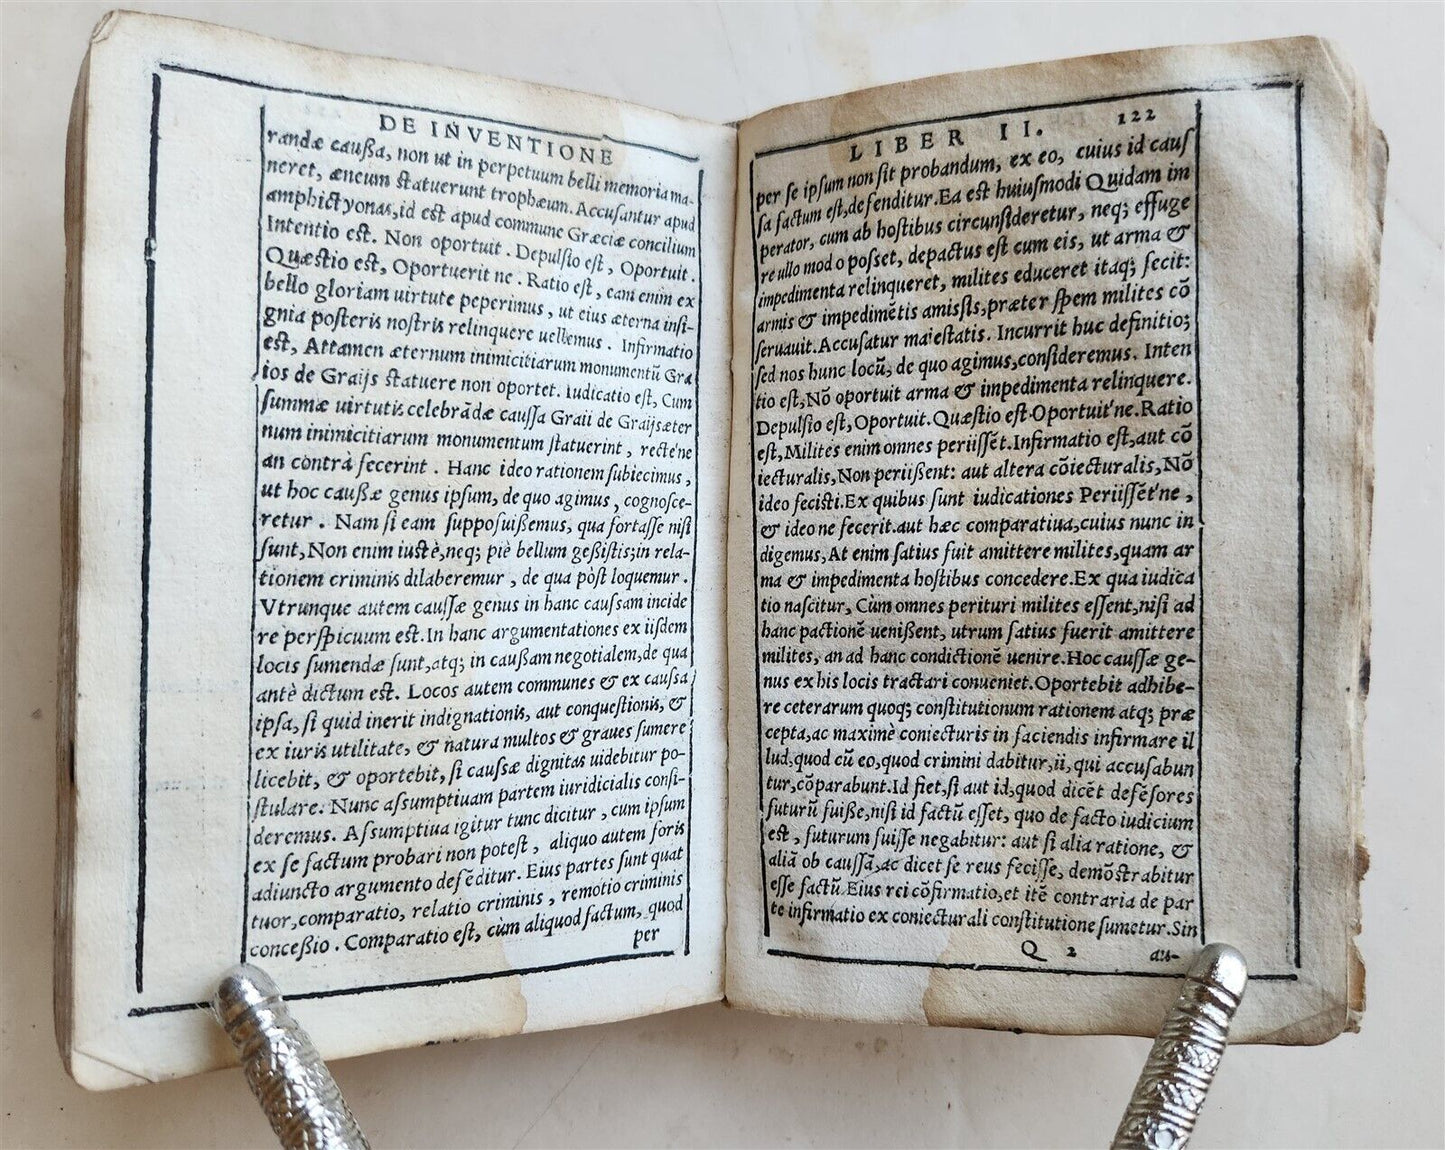 DE INVENTIONE
randæ caußa, non ut in perpetuum belli memoria ma-
neret, æneum statuerunt trophæum. Accusantur apud
amphictyonas, id est apud commune Græciæ concilium
Intentio est. Non oportuit. Depulsio est, Oportuit.
Quæstio est, Oportuerit ne. Ratio est, eam enim ex
bello gloriam uirtute peperimus, ut eius æterna insi-
gnia posteris nostris relinquere uellemus. Infirmatio
est, Attamen æternum inimicitiarum monumentũ Gra
ios de Graijs statuere non oportet. Iudicatio est, Cum
summæ uirtutis celebrãdæ caussa Graii de Graijs æter
num inimicitiarum monumentum statuerint, recte'ne
an contrà fecerint. Hanc ideo rationem subiecimus,
ut hoc caußæ genus ipsum, de quo agimus, cognosce-
retur. Nam si eam supposuißemus, qua fortasse nisi
sunt, Non enim iustè, neq; piè bellum geßistis; in rela-
tionem criminis dilaberemur, de qua pòst loquemur.
Vtrunque autem caussæ genus in hanc caussam incide
re perspicuum est. In hanc argumentationes ex iisdem
locis sumendæ sunt, atq; in caußam negotialem, de qua
antè dictum est. Locos autem communes & ex caussa
ipsa, si quid inerit indignationis, aut conquestionis, &
ex iuris utilitate, & natura multos & graues sumere
licebit, & oportebit, si caussæ dignitas uidebitur po-
stulare. Nunc assumptiuam partem iuridicialis consi-
deremus. Assumptiua igitur tunc dicitur, cum ipsum
ex se factum probari non potest, aliquo autem foris
adiuncto argumento defẽditur. Eius partes sunt quat
tuor, comparatio, relatio criminis, remotio criminis
conceßio. Comparatio est, cùm aliquod factum, quod
per
LIBER II. 122
per se ipsum non sit probandum, ex eo, cuius id caus
sa factum est, defenditur. Ea est huiusmodi Quidam im
perator, cum ab hostibus circunsideretur, neq; effuge
re ullo modo posset, depactus est cum eis, ut arma &
impedimenta relinqueret, milites educeret itaq; fecit:
armis & impedimẽtis amissis, præter spem milites cõ
seruauit. Accusatur maiestatis. Incurrit huc definitio;
sed nos hunc locũ, de quo agimus, consideremus. Inten
tio est, Nõ oportuit arma & impedimenta relinquere.
Depulsio est, Oportuit. Quæstio est. Oportuit'ne. Ratio
est, Milites enim omnes periissẽt. Infirmatio est, aut cõ
iecturalis, Non periißent: aut altera cõiecturalis, Nõ
ideo fecisti. Ex quibus sunt iudicationes Periissẽt'ne,
& ideo ne fecerit. aut hæc comparatiua, cuius nunc in
digemus, At enim satius fuit amittere milites, quam ar
ma & impedimenta hostibus concedere. Ex qua iudica
tio nascitur, Cùm omnes perituri milites essent, nisi ad
hanc pactionẽ uenißent, utrum satius fuerit amittere
milites, an ad hanc condictionẽ uenire. Hoc caussæ ge-
nus ex his locis tractari conueniet. Oportebit adhibe-
re ceterarum quoq; constitutionum rationem atq; præ
cepta, ac maximè coniecturis in faciendis infirmare il
lud, quod cũ eo, quod crimini dabitur, ii, qui accusabun
tur, cõparabunt. Id fiet, si aut id, quod dicẽt defẽsores
futurũ fuiße, nisi id factũ esset, quo de facto iudicium
est, futurum fuisse negabitur: aut si alia ratione, &
aliã ob caussã, ac dicet se reus fecisse, demõstrabitur
esse factũ. Eius rei cõfirmatio, et itẽ contraria de par
te infirmatio ex coniecturali constitutione sumetur. Sin
Q 2 au-